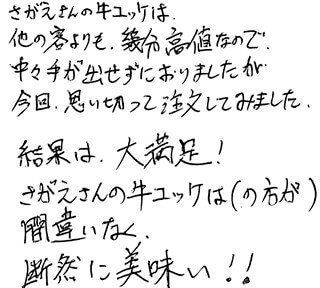 さがえさんの牛ユッケは、
他の客よりも、幾分高値なので、
中々手が出せずにおりましたが
今回、思い切って注文してみました、
結果は、大満足!
さがえさんの牛ユッケは(の方が)
間違いなく、
断然に美味い!!